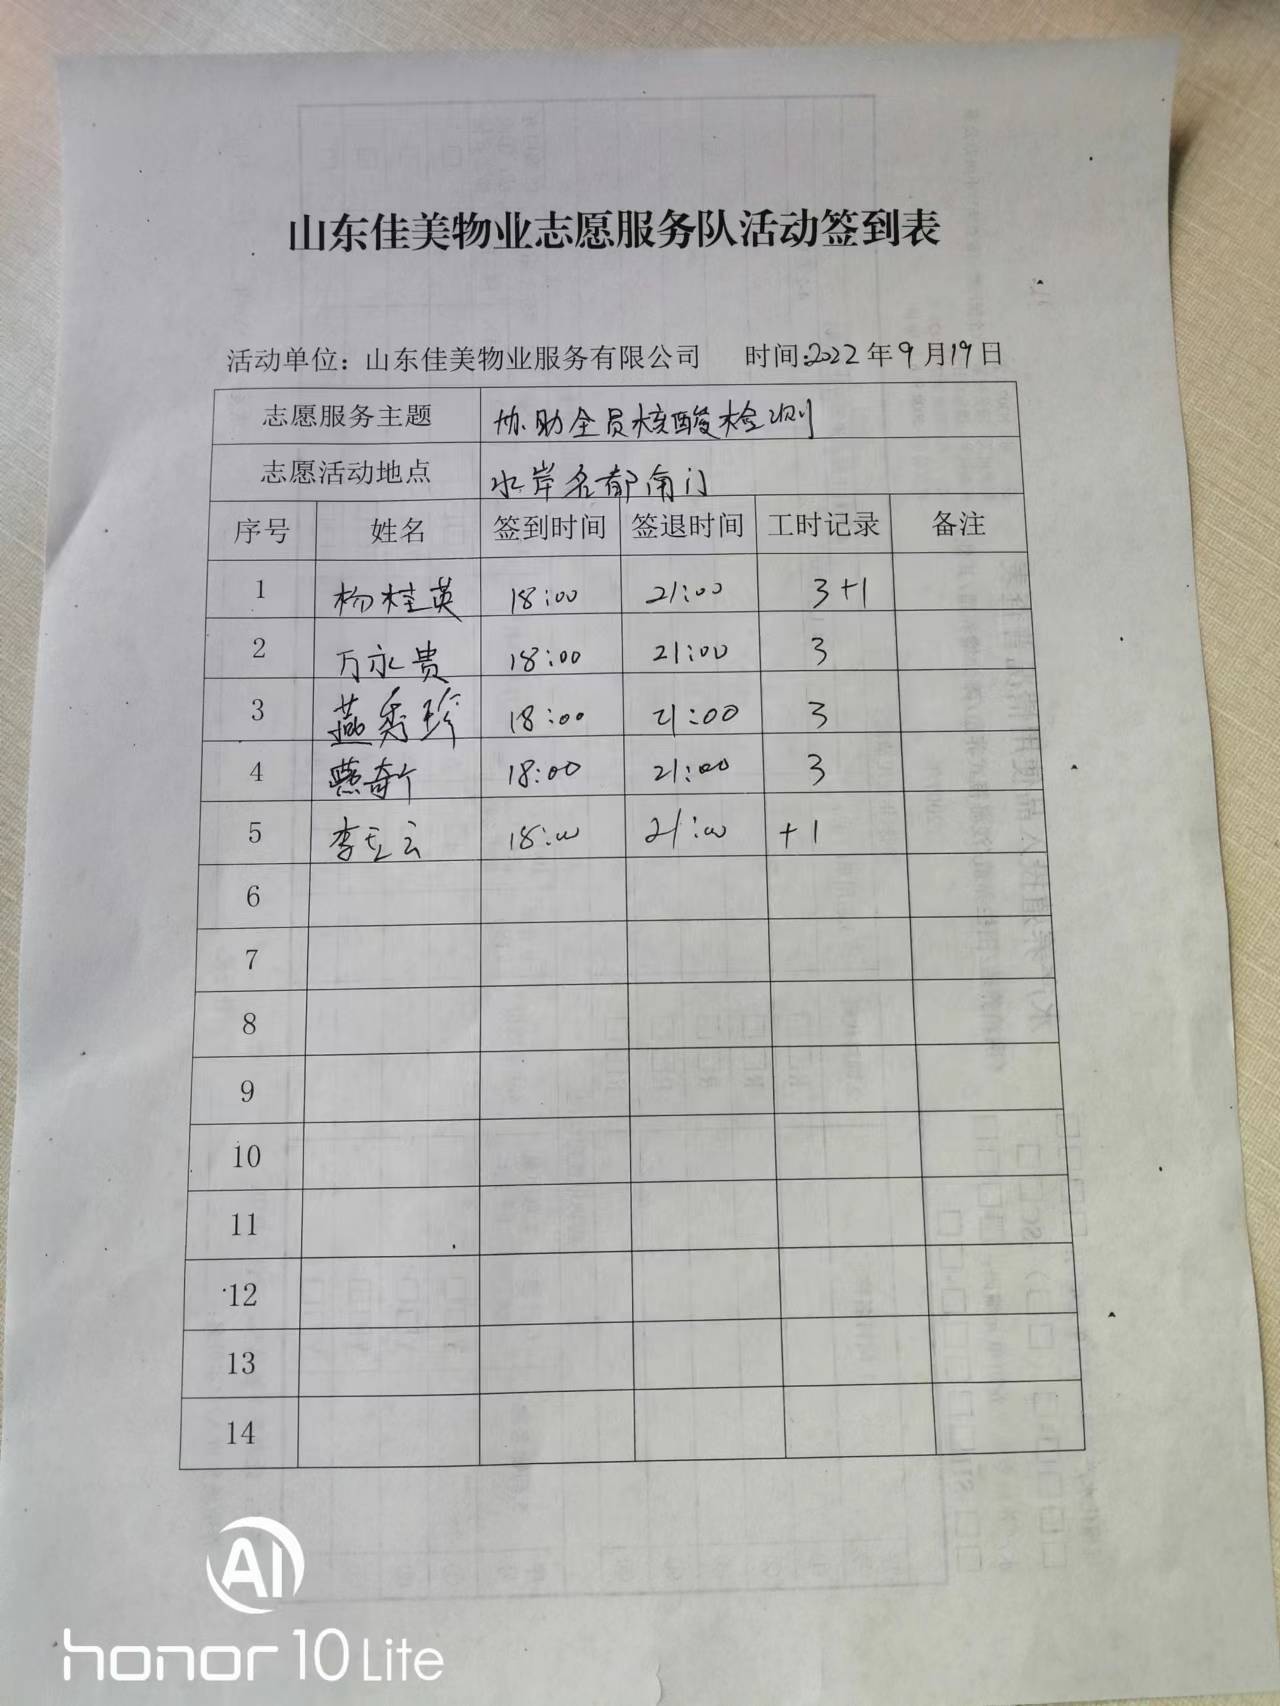 山东佳美物业志愿服务队活动签到表
活动单位：山东佳美物业服务有限公司 时间:2022年9月19日
志愿服务主题 协助全员核酸检测
志愿活动地点 水岸名都南门
序号 姓名 签到时间 签退时间 工时记录 备注
1 杨桂英 18:00 21:00 3+1
2 万永贵 18:00 21:00 3
3 燕秀珍 18:00 21:00 3
4 18:00 21:00 3
5 李玉云 18:00 21:00 +1
6
7
8
9
10
11
12
13
14
AI
honor 10 Lite